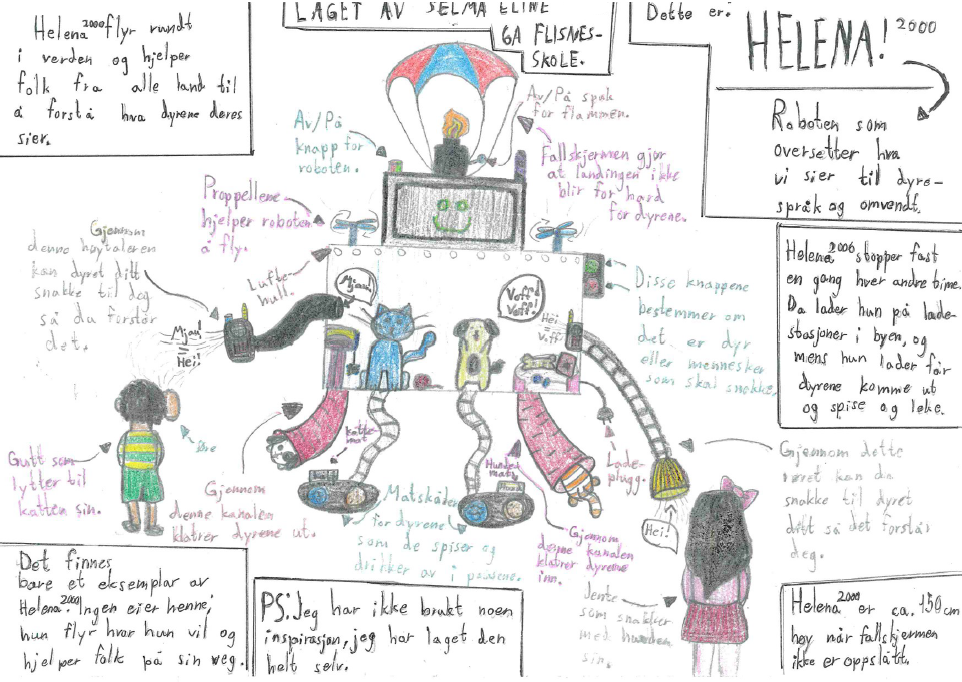 Helena²⁰⁰⁰ flyr rundt
i verden og hjelper
folk fra alle land til
å forstå hva dyrene deres
sier.
LAGET AV SELMA ELINE
6A FLISNES-
SKOLE.
Dette er:
HELENA! ²⁰⁰⁰
Roboten som
oversetter hva
vi sier til dyre-
språk og omvendt.
Av/På
knapp for
roboten.
Av/På spak
for flammen.
Fallskjermen gjør
at landingen ikke
blir for hard
for dyrene.
Proppellene
hjelper roboten
å fly.
Gjennom
denne høytaleren
kan dyret ditt
snakke til deg
så du forstår
det.
Lufte-
hull.
Mjau!
Voff!
Voff!
Hei!
=
Voff!
Mjau!
=
Hei!
Disse knappene
bestemmer om
det er dyr
eller mennesker
som skal snakke.
Helena²⁰⁰⁰ stopper fast
en gang hver andre time.
Da lader hun på lade-
stasjoner i byen, og
mens hun lader får
dyrene komme ut
og spise og leke.
Gutt som
lytter til
katten sin.
øre
Gjennom
denne kanalen
klatrer dyrene ut.
Katte-
mat
Hunde-
mat
Matskåler
for dyrene
som de spiser og
drikker av i pausene.
Lade-
plugg.
Gjennom
denne kanalen
klatrer dyrene
inn.
Hei!
Gjennom dette
røret kan du
snakke til dyret
ditt så det forstår
deg.
Jente
som snakker
med hunden
sin.
Det finnes
bare et eksemplar av
Helena²⁰⁰⁰. Ingen eier henne,
hun flyr hvor hun vil og
hjelper folk på sin veg.
PS: Jeg har ikke brukt noen
inspirasjon, jeg har laget den
helt selv.
Helena²⁰⁰⁰ er ca. 150 cm
høy når fallskjermen
ikke er oppslått.